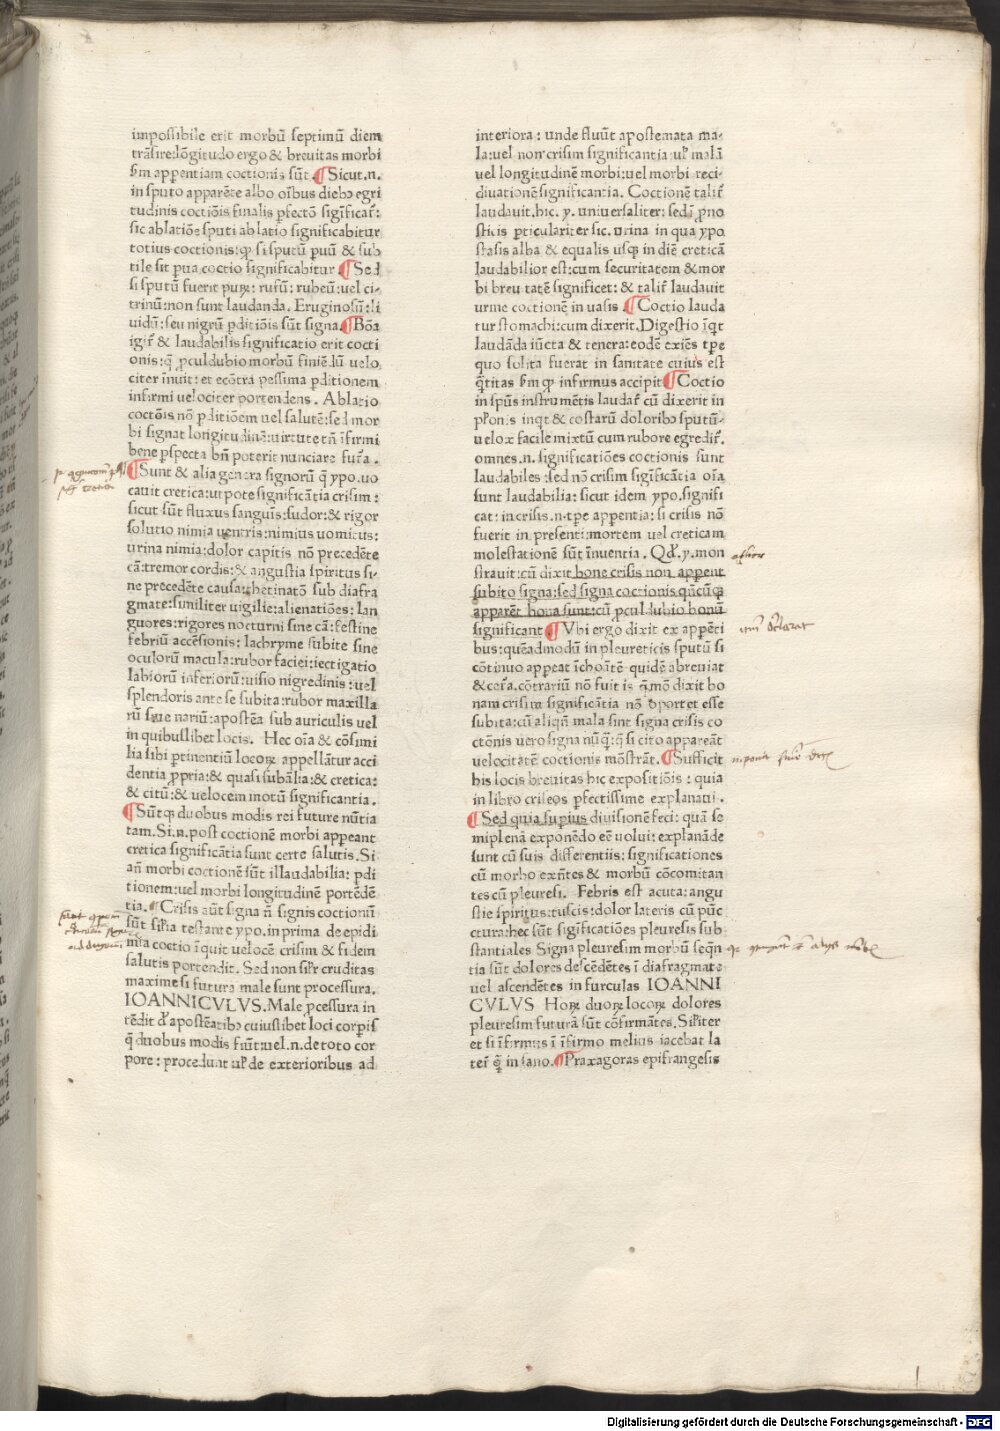 impossibile erit morbū septimū diem
trāsire:lōgitudo ergo & breuitas morbi
ẜm apparentiam coctionis sūt.¶Sicut.n.
in sputo apparēte albo oībus diebꝰ egri
tudinis coctiōis finalis pfectō sigīficaṙ:
sic ablatiōe sputi ablatio significabitur
totius coctionis:qꝫ si sputū puū & sub
tile sit pua coctio significabitur ¶Sed
si sputū fuerit puꝝ: rufū: rubeū:uel ci-
trinū:non sunt laudanda. Eruginosū:li
uidū:seu nigrū pditiōis sūt signa.¶Bōa
igiṙ & laudabilis significatio erit cocti
onis:q̄ pculdubio morbū finiēdū uelo
citer īnuit:et ecōtra pessima pditionem
infirmi uelociter portendens. Ablatio
coctōis nō pditiōem uel salutē:sed mor
bi signat longitudinē:uirtute tn̄ īfirmi
bene pspecta bn̄ poterit nunciare fuṫa.
¶Sunt & alia genera signorū q̄ ypo.uo
cauit cretica:utpote significātia crisim:
sicut sūt fluxus sanguīs:sudor:& rigor
solutio nimia uentris:nimius uomitus:
urina nimia:dolor capitis nō precedēte
cā:tremor cordis:& angustia spiritus si-
ne precedēte causa:hetinatō sub diafra
gmate:similiter uigilie:alienatiōes:lan
guores:rigores nocturni sine cā:festine
febriū accēsionis:lachryme subite sine
oculorū macula:rubor faciei:iectigatio
labiorū inferiorū:uisio nigredinis:uel
splendoris ante se subita:rubor maxilla
rū siue nariū:apostēa sub auriculis uel
in quibuslibet locis. Hec oīa & cōsimi
lia sibi ptinentiū locoꝝ appellātur acci
dentia ppria:& quasi subālia:& cretica:
& citū:& uelocem motū significantia.
¶Sūtqꝫ duobus modis rei future nūtia
tam.Si.n.post coctionē morbi appeant
cretica significātia sunt certe salutis.Si
an̄ morbi coctionē sūt illaudabilia: pdi
tionem:uel morbi longitudinē portēdē
tia.¶Crisis aūt signa n̄ signis coctionū
sūt siḹia testante ypo.in prima de epidi
mia coctio īquit uelocē crisim & fidem
salutis portendit. Sed non siḹr cruditas
maxime si futura male sunt processura.
IOANNICVLVS.Male pcessura in
tēdit đ apostēatibꝰ cuiuslibet loci corpis
q̄ duobus modis fiūt uel.n.de toto cor
pore: procedunt uł de exterioribus ad
interiora: unde fluūt apostemata ma-
la:uel non crisim significantia uł malā
uel longitudinē morbi:uel morbi reci-
diuationē significantia. Coctionē taliṫ
laudauit.hic. y. uniuersaliter:sed ī pno
sticis pticulariter sic. Vrina in qua ypo
stasis alba & equalis usqꝫ in diē creticā
laudabilior est:cum securitatem & mor
bi breuitatē significet: & taliṫ laudauit
urine coctionē in uasis ¶Coctio lauda
tur stomachi:cum dixerit.Digestio īqt
laudāda iūcta & tenera:eodē exīes tpe
quo solita fuerat in sanitate cuius est
q̄titas ẜm qꝫ infirmus accipit ¶Coctio
in spūs instrumētis laudaṙ cū dixerit in
pḹon.s inqt & costarū doloribꝰ sputū-
uelox facile mixtū cum rubore egrediṙ.
omnes.n. significatiōes coctionis sunt
laudabiles:sed nō crisim sigīficātia oīa
sunt laudabilia: sicut idem ypo.signifi
cat: in crisis.n.tpe appentia:si crisis nō
fuerit in presenti:mortem uel creticam
molestationē sūt īnuentia. Qđ.y.mon
strauit:cū dixit bone crisis non appent
subito signa:sed signa coctionis qn̄cūqꝫ
apparēt bona sunt:cū pculdubio bonū
significant ¶Vbi ergo dixit ex appēti
bus:quēadmodū in pleureticis sputū si
cōtinuo appeat īchoāte quidē abreuiat
& ceṫa.cōtrariū nō fuit is q̄mō dixit bo
nam crisim significātia nō oportet esse
subita:cū aliqn̄ mala sint signa crisis co
ctōnis uero signa nūq̄:q̄ si cito appareāt
uelocitatē coctionis mōstrāt.¶Sufficit
his locis breuitas hic expositiōis: quia
in libro criseos pfectissime explanaui.
¶Sed quia supius diuisionē feci: quā se
miplenā exponēdo eē uolui: explanāde
sunt cū suis differentiis: significationes
cū morbo exn̄tes & morbū cōcomitan
tes cū pleuresi. Febris est acuta:angu
stie spiritus:tussis:dolor lateris cū pūc
ctura:hec sūt sigificatiōes pleuresis sub
stantiales Signa pleuresim morbū seqn̄
tia sūt dolores descēdētes ī diafragmate
uel ascendētes in furculas IOANNI
CVLVS Hoꝝ duoꝝ locoꝝ dolores
pleuresim futurā sūt cōfirmātes.Siḹiter
et si īfirmus ī īfirmo melius iacebat la
teṙ q̄ in sano.¶Praxagoras epifrangesis
Digitalisierung gefördert durch die Deutsche Forschungsgemeinschaft - DFG